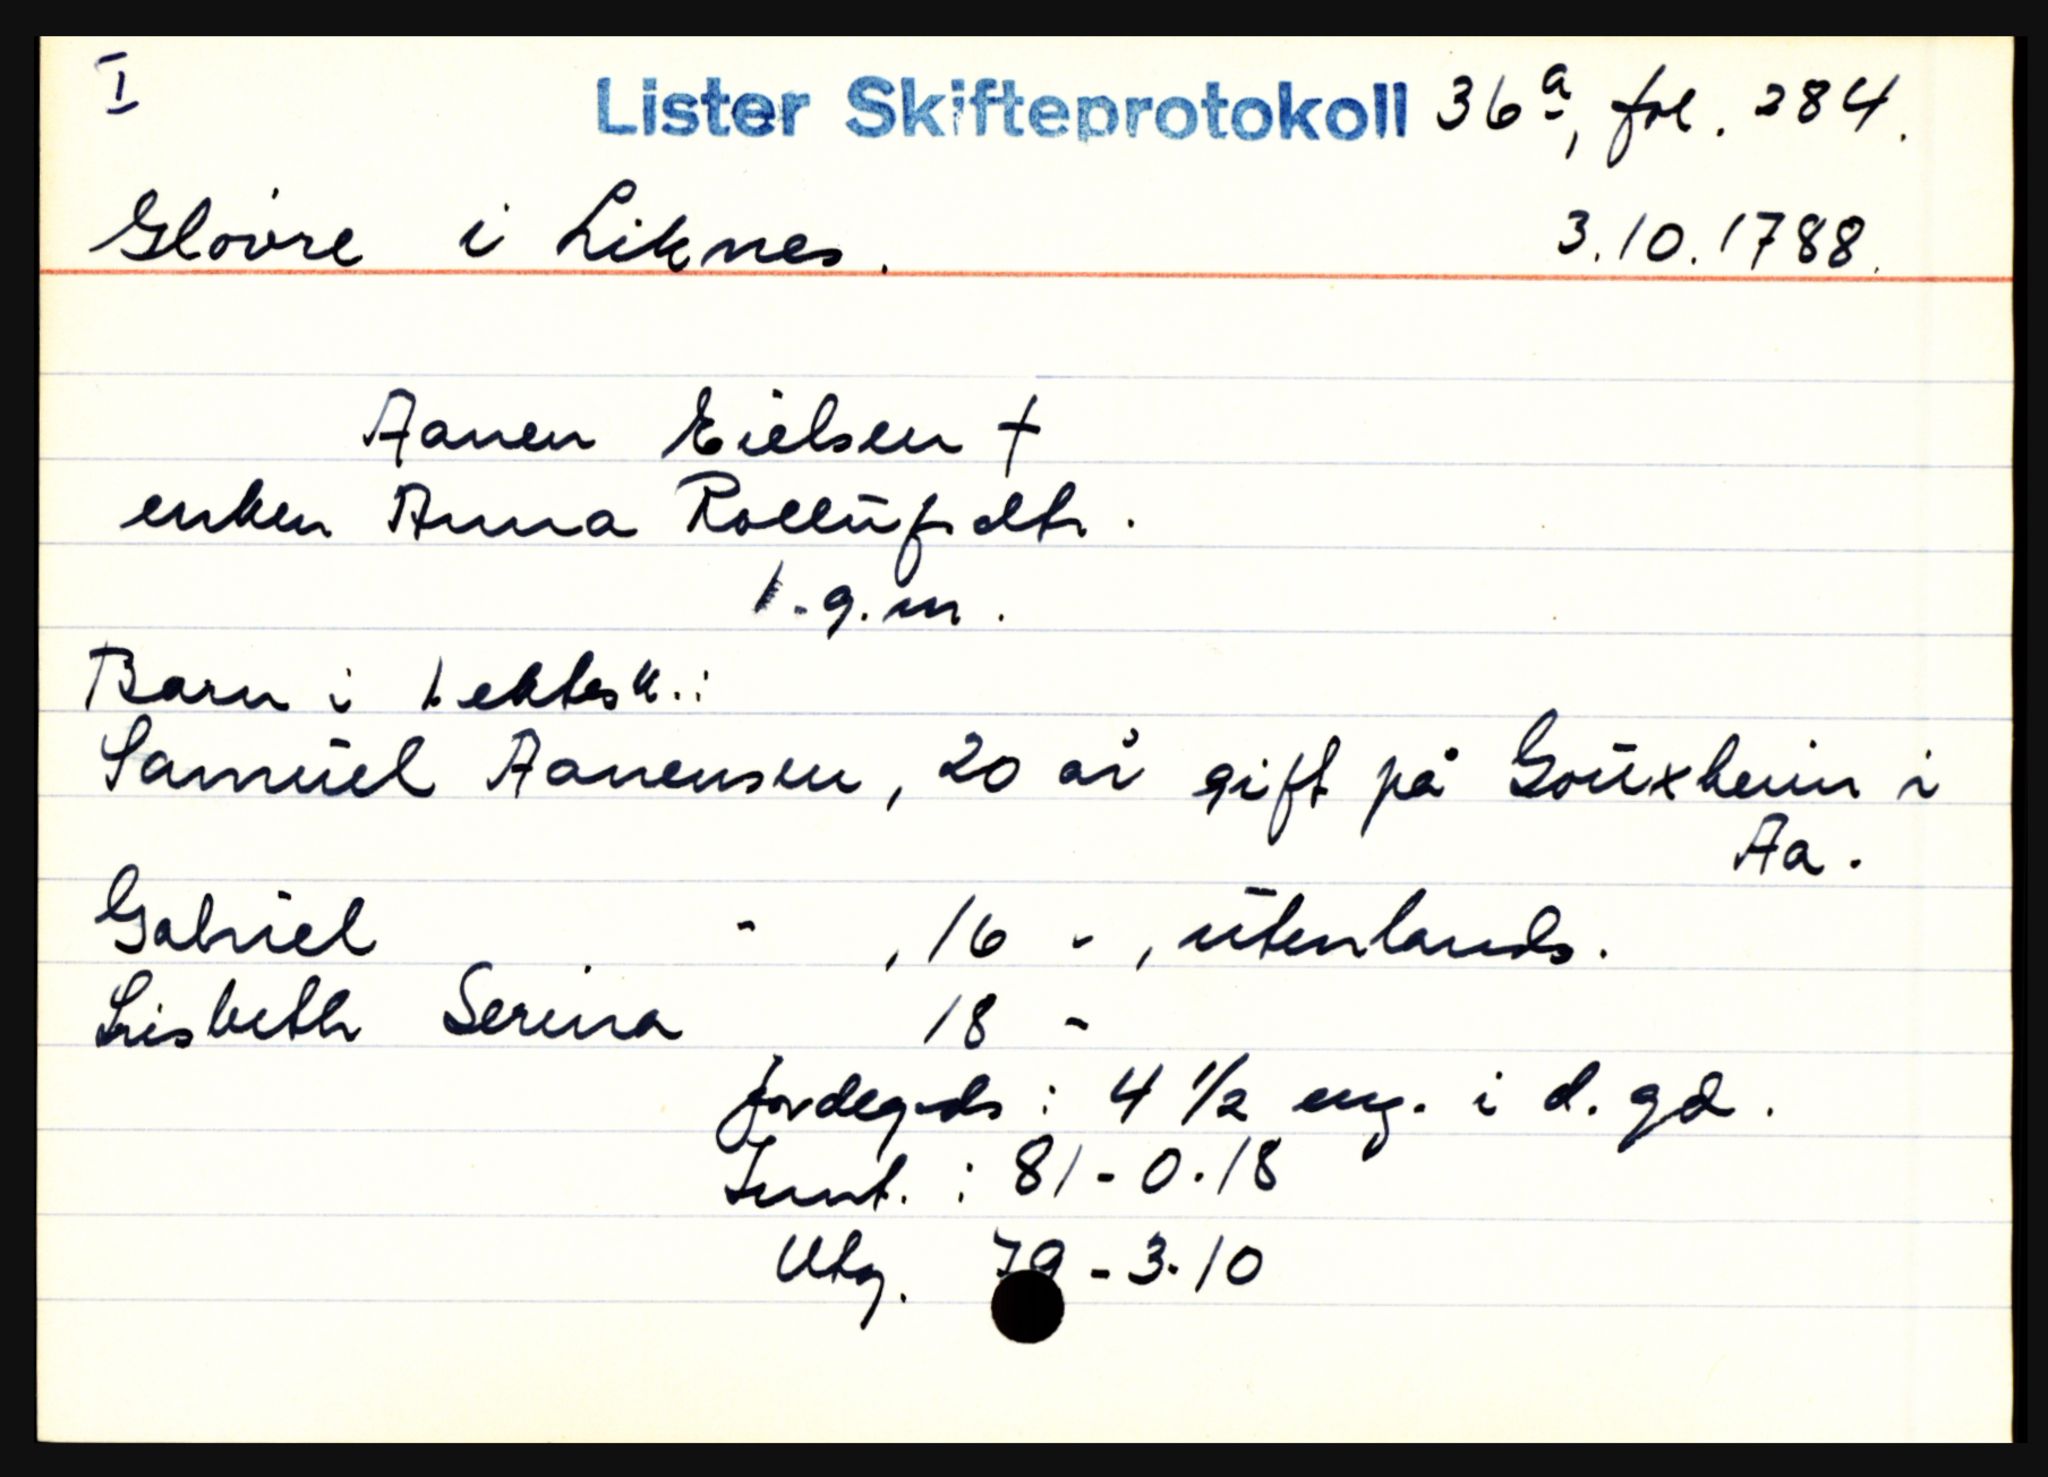 I
Lister Skifteprotokoll 36a, fol. 284.
Glovre i Liknes. 3.10.1788.
Aanen Eielsen †
enken Anna Rollūfsdtr.
1. g. m.
Barn i 1 ektesk.:
Samūel Aanensen, 20 år gift på Goūxheim i
Aa.
Gabriel - , 16 - , ūtenlands.
Lisbeth Serina 18 -
Jordegods : 4 1/2 eng. i d. gd.
Innt. : 81 - 0 - 18
Utg. 79 - 3 - 10